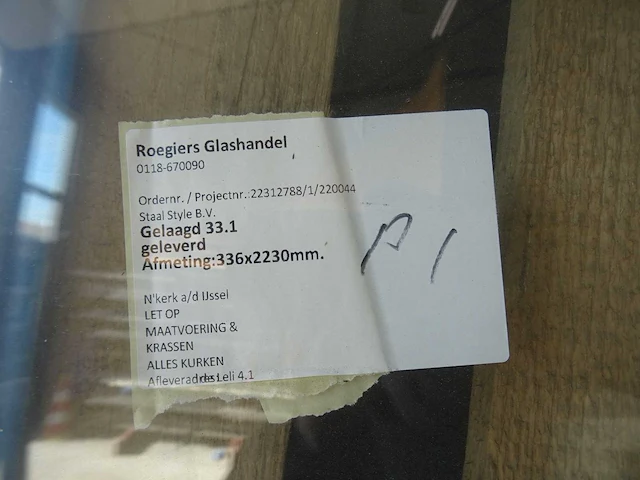 Roegiers Glashandel
0118-670090
Ordernr. / Projectnr.:22312788/1/220044
Staal Style B.V.
Gelaagd 33.1
geleverd
Afmeting:336x2230mm.
N'kerk a/d IJssel
LET OP
MAATVOERING &
KRASSEN
ALLES KURKEN
4.1